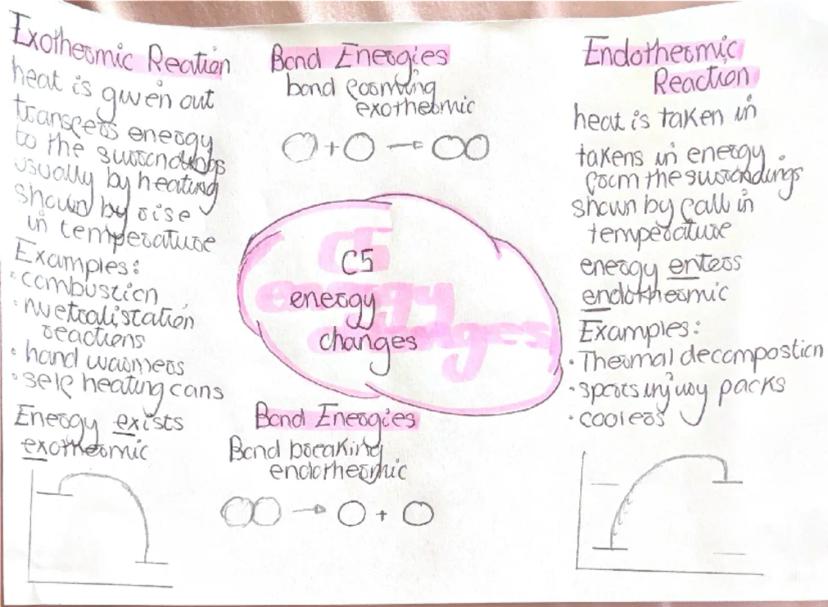 Exothermic Reation
heat is given out
transfers energy
to the surrondings
usually by heating
shown by rise
in temperature
Examples:
• combustion
• nuetralistation
reactions
• hand warmers
• self heating cans
Energy exists
exothermic
Bond Energies
bond forming
exothermic
C5
energy
changes
Bond Energies
Bond breaking
endothermic
Endothermic
Reaction
heat is taken in
takens in energy
form the surrondings
shown by fall in
temperature
energy enters
endothermic
Examples:
• Thermal decompostion
• sports injury packs
• coolers